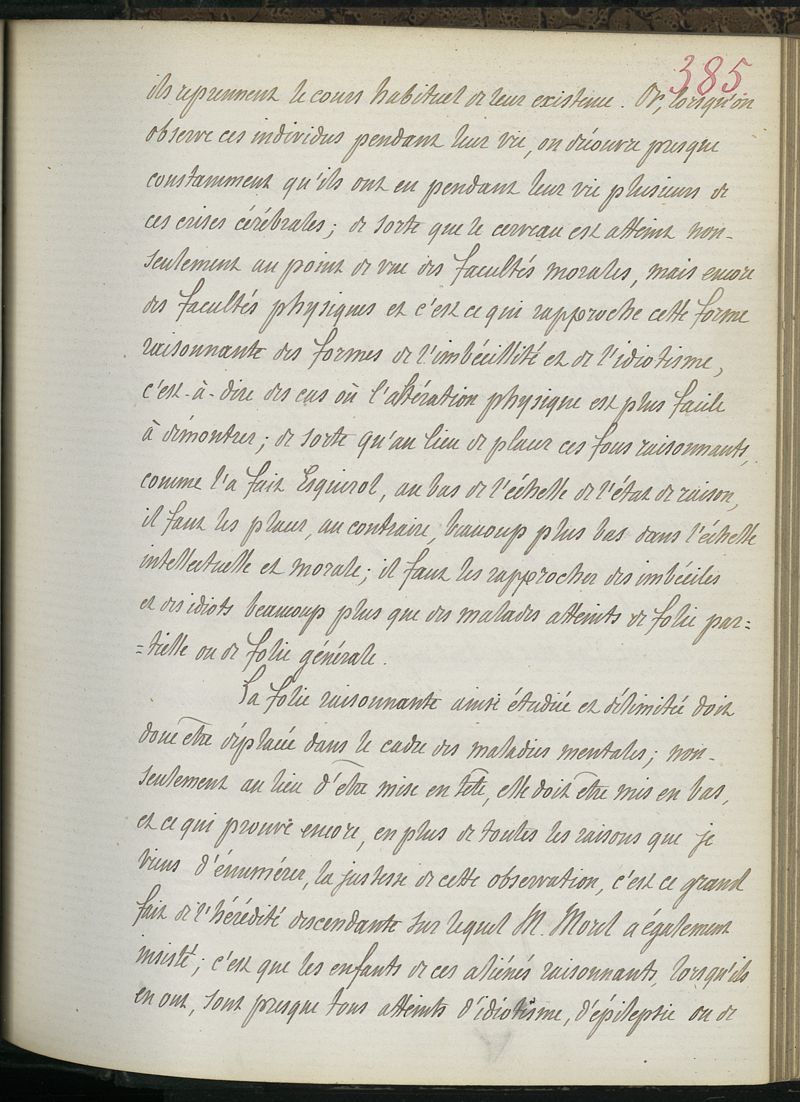 385
ils reprennent le cours habituel de leur existence. Or, lorsqu'on
observe ces individus pendant leur vie, on découvre presque
constamment qu'ils ont eu pendant leur vie plusieurs de
ces crises cérébrales; de sorte que le cerveau est atteint non-
seulement au point de vue des facultés morales, mais encore
des facultés physiques et c'est ce qui rapproche cette forme
raisonnante des formes de l'imbécillité et de l'idiotisme,
c'est-à-dire des cas où l'altération physique est plus facile
à démontrer; de sorte qu'au lieu de placer ces fous raisonnants,
comme l'a fait Esquirol, au bas de l'échelle de l'état de raison,
il faut les placer, au contraire, beaucoup plus bas dans l'échelle
intellectuelle et morale; il faut les rapprocher des imbéciles
et des idiots beaucoup plus que des malades atteints de folie par=
=tielle ou de folie générale.
La folie raisonnante ainsi étudiée et délimitée doit
donc être déplacée dans le cadre des maladies mentales; non-
seulement au lieu d'être mise en tête, elle doit être mis en bas,
et ce qui prouve encore, en plus de toutes les raisons que je
viens d'énumérer, la justesse de cette observation, c'est ce grand
fait de l'hérédité descendante sur lequel M. Morel a également
insisté; c'est que les enfants de ces aliénés raisonnants, lorsqu'ils
en ont, sont presque tous atteints d'idiotisme, d'épilepsie ou de